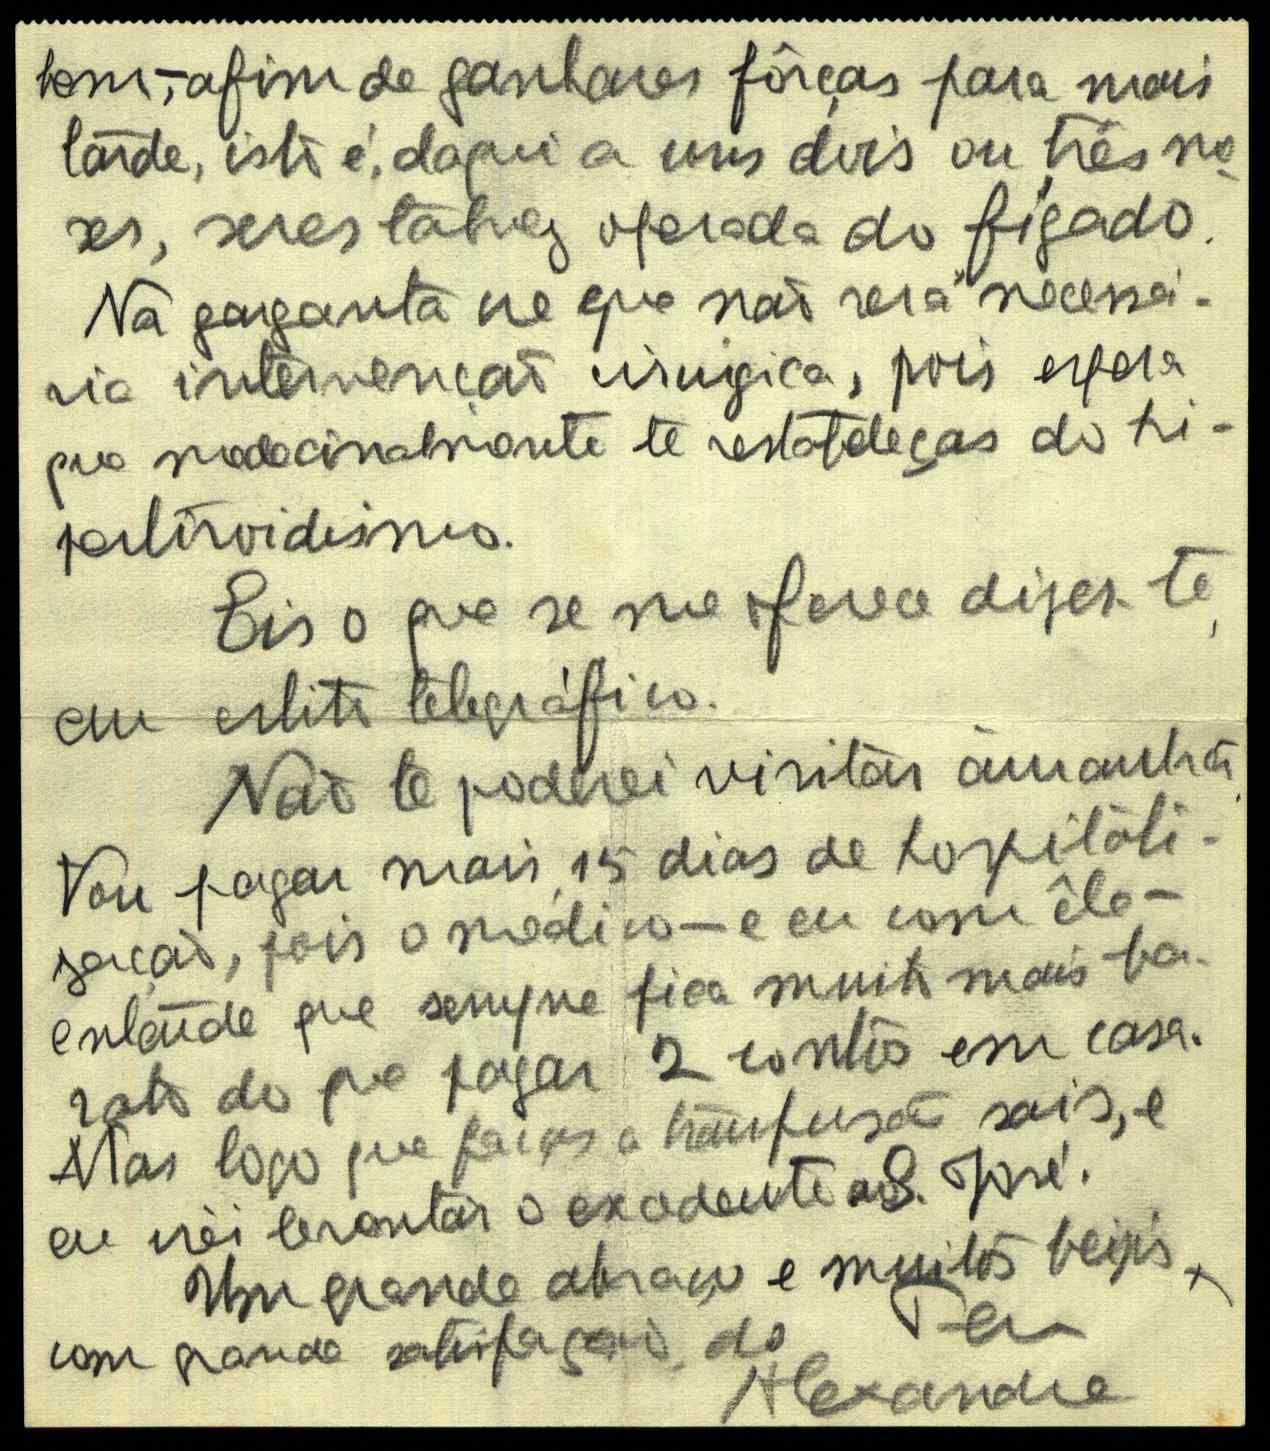 bem, - afim de ganhares fôrças para mais
tarde, isto é, daqui a uns dois ou três me-
ses, seres talvez operada do fígado.
Na garganta vê que não será necessá-
ria intervenção cirúrgica, pois espera
que medecinalmente te restabeleças do hi-
pertiroidismo.
Eis o que se me oferece dizer-te,
em estilo telegráfico.
Não te poderei visitar àmanhã.
Vou pagar mais 15 dias de hospitali-
zação, pois o médico — e eu com êle —
entende que sempre fica muito mais ba-
rato do que pagar 2 contos em casa.
Mas logo que faças a tranfusão sais, e
eu irei levantar o excedente ao S. José.
Um grande abraço e muitos beijos,
com grande satisfação, do Teu
Alexandre